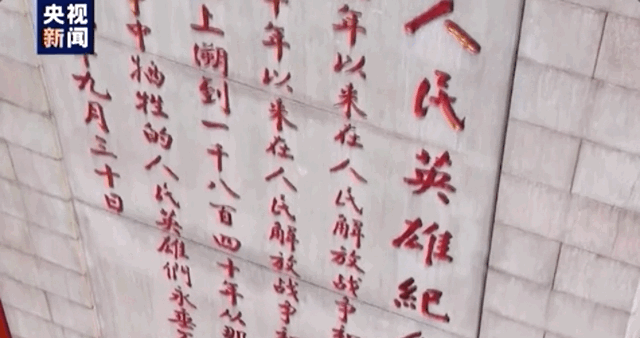 央视
新闻
人民英雄紀
年以来在人民解放战争
年以来在人民解放战争
上溯到一千八百四十年从那
中牺牲的人民英雄們永垂
九月三十日